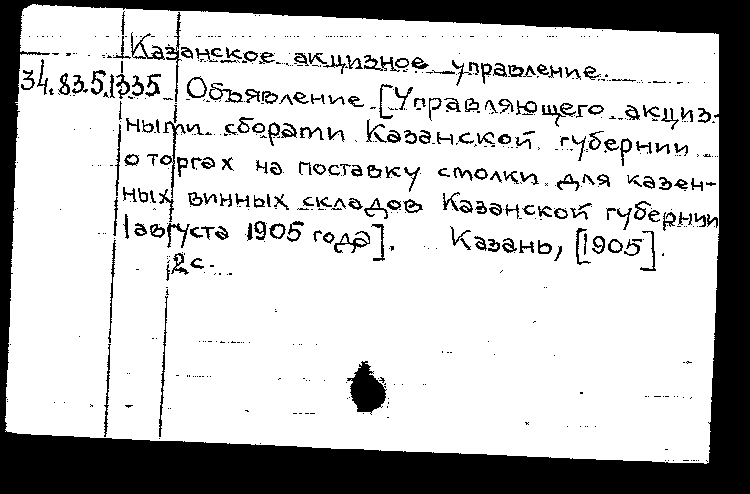 Казанское акцизное управление.
34.83.5.1335 Объявление [Управляющего акциз-
ными сборами Казанской губернии
о торгах на поставку столки для казен-
ных винных складов Казанской губернии
1 августа 1905 года]. Казань, [1905].
2 с.